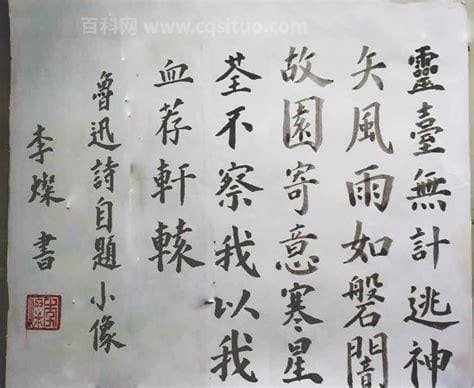 百科网 www.cqsituo.com
靈臺無計逃神
矢風雨如磐闇
故園寄意寒星
荃不察我以我
血荐軒轅
魯迅詩自題小像
李燦書